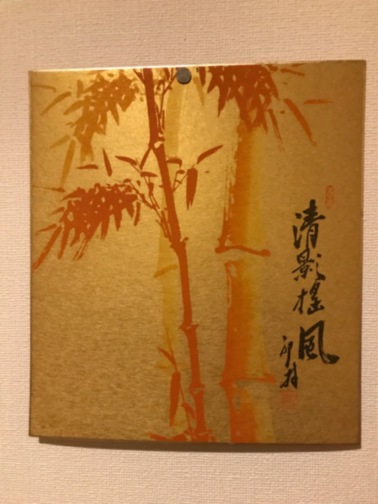 清影揺風